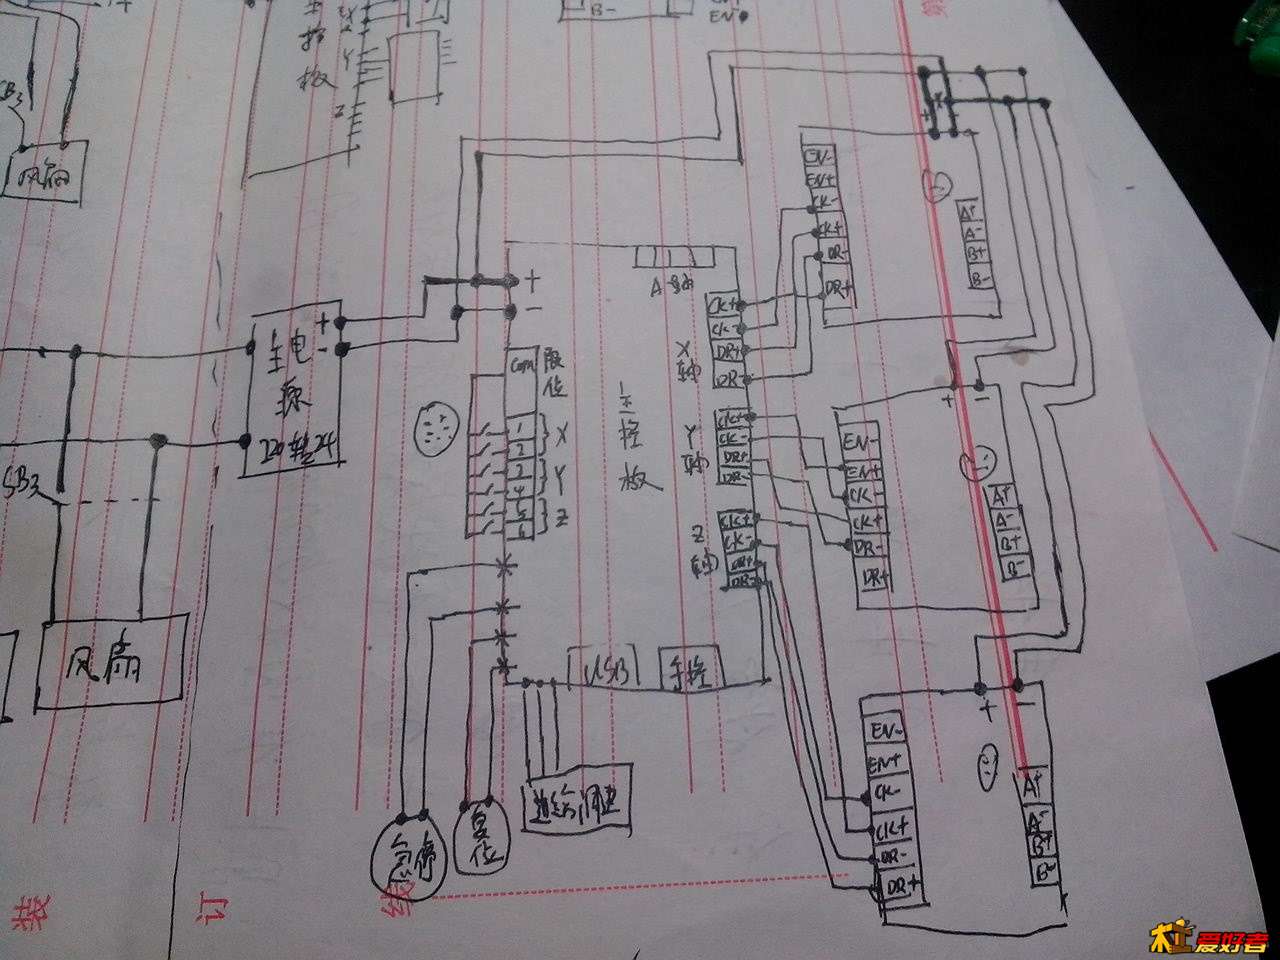 B-
EN
控
板
Y
Z
风扇
主电
源
220转24
+
-
SB3
风扇
+
-
A轴
com
限
位
1
2
3
4
5
6
X
Y
Z
主
控
板
X
轴
CK+
CK-
DR+
DR-
Y
轴
CK+
CK-
DR+
DR-
Z
轴
CK+
CK-
DR+
DR-
USB
手控
急停
复位
进给调速
EN-
EN+
CK-
CK+
DR-
DR+
A+
A-
B+
B-
+
-
EN-
EN+
CK-
CK+
DR-
DR+
A+
A-
B+
B-
+
-
EN-
EN+
CK-
CK+
DR-
DR+
A+
A-
B+
B-
装
订
线
杜爱好者